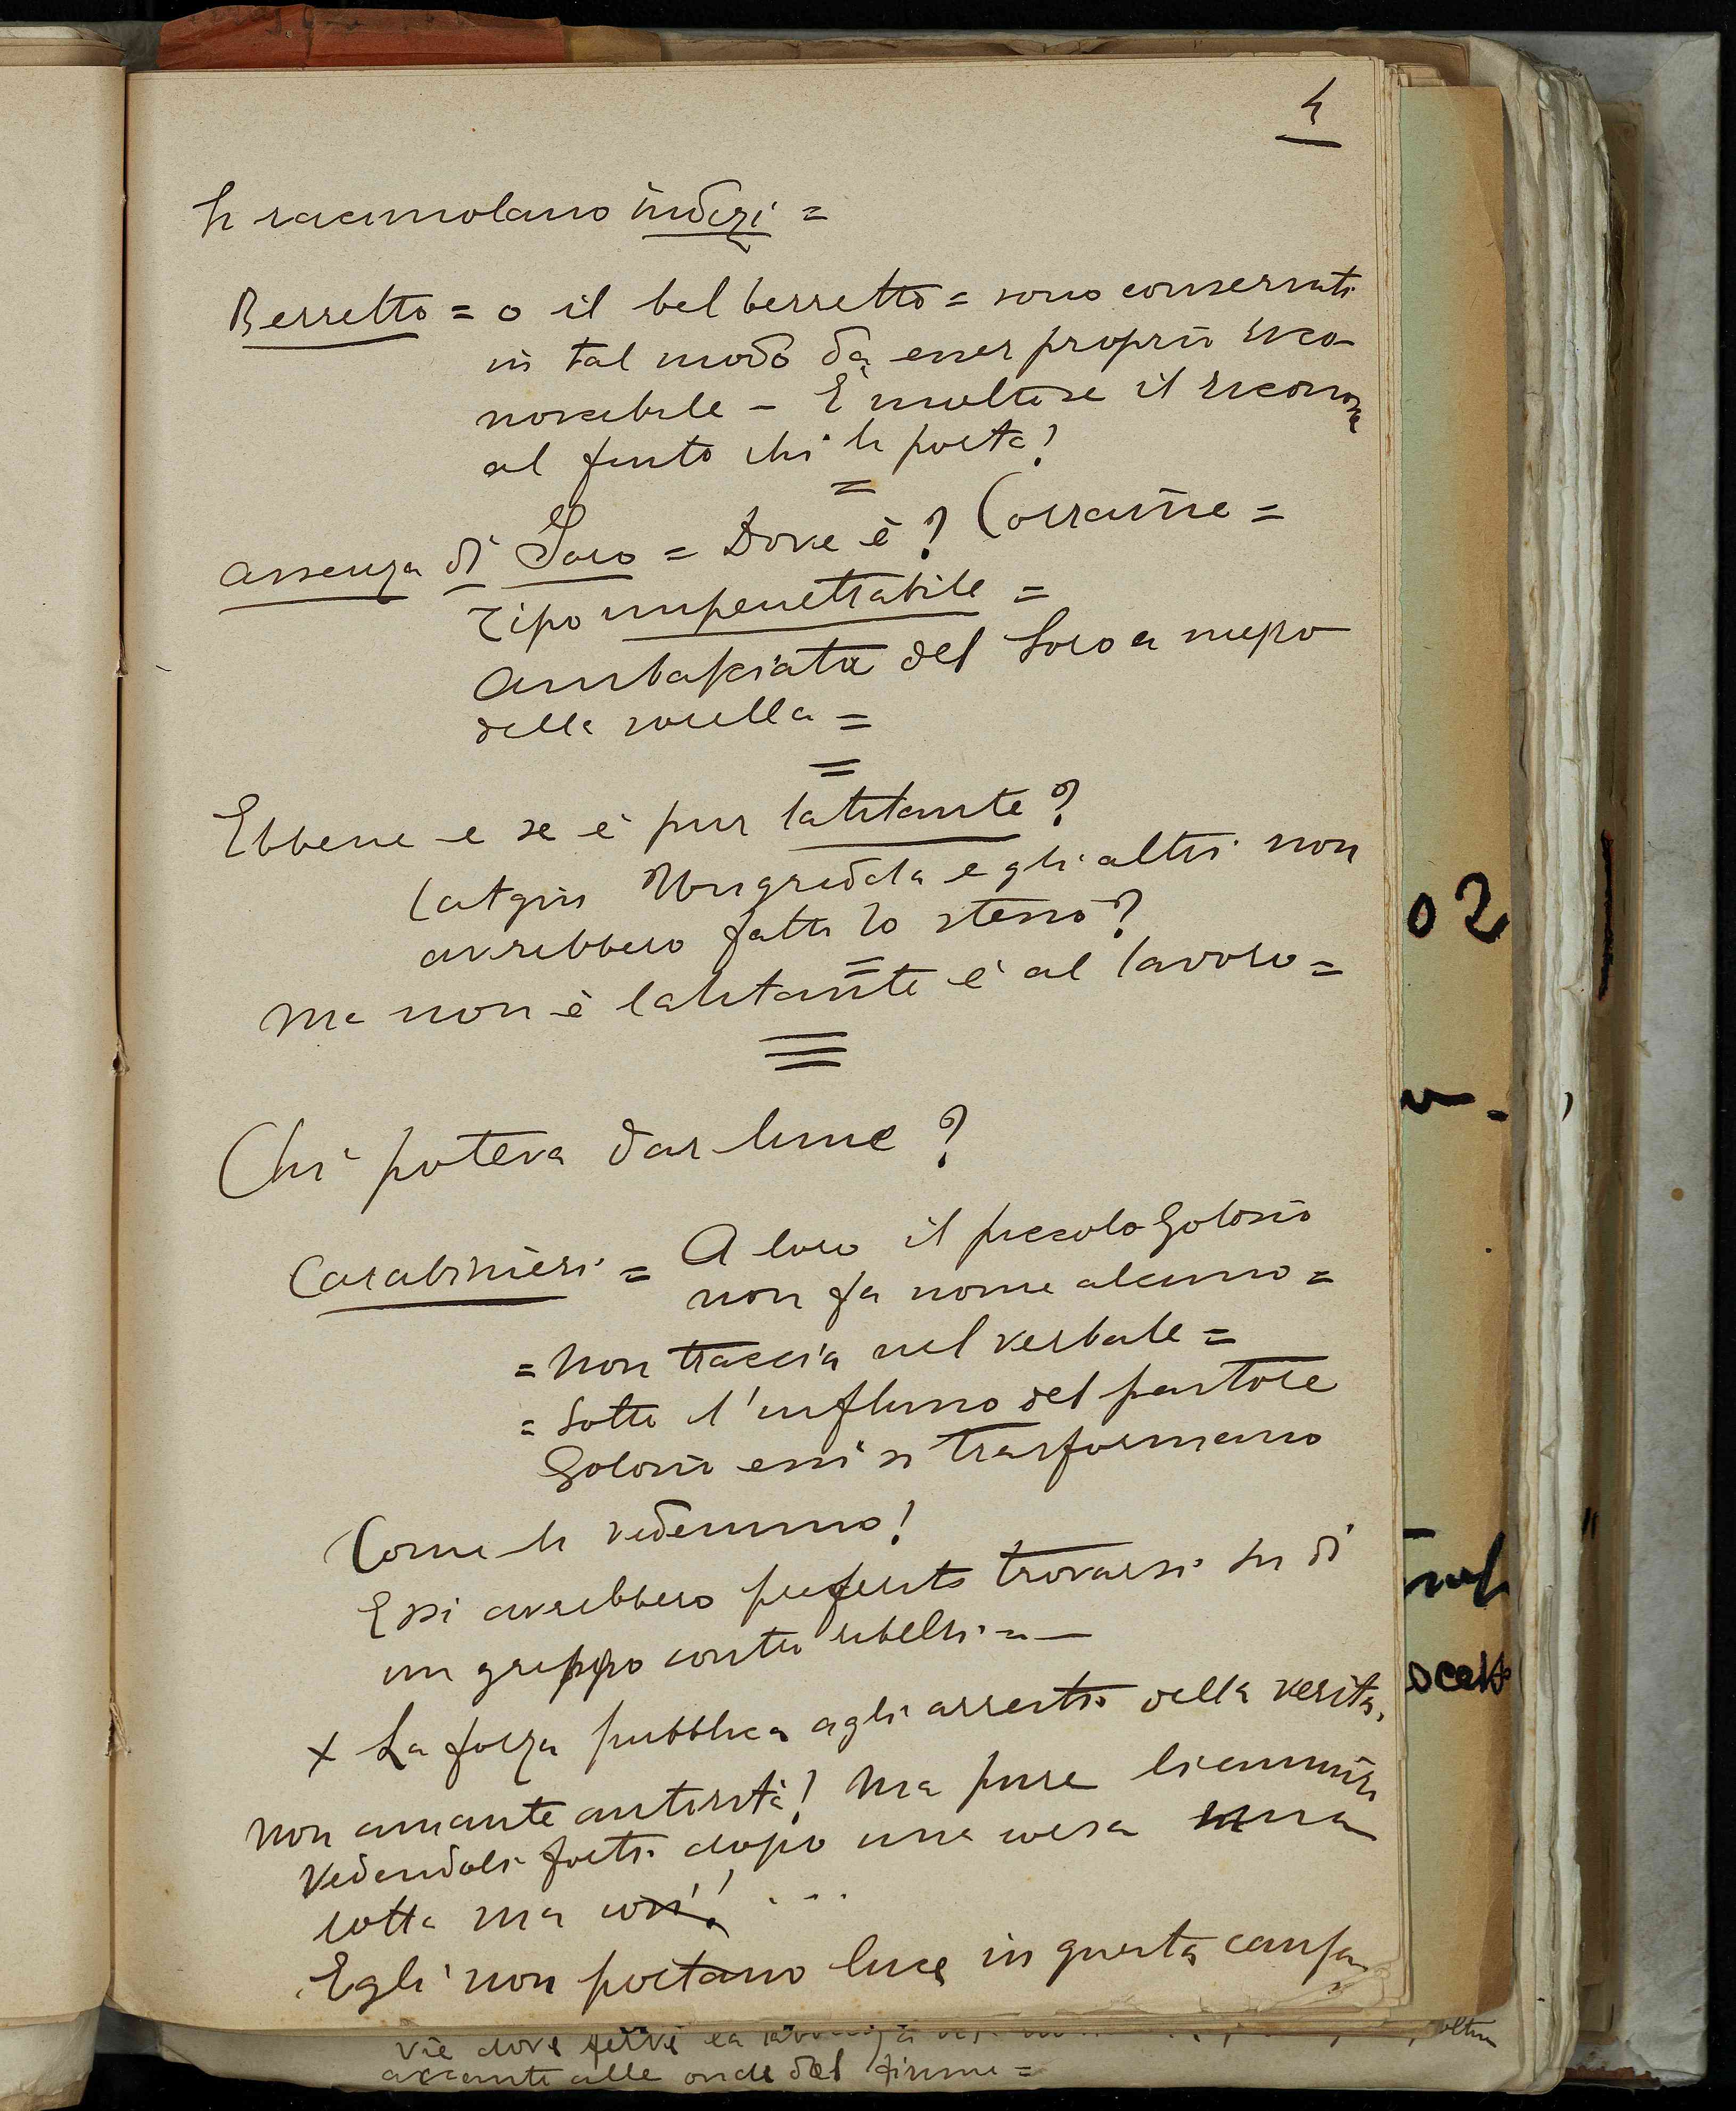 4
Si racimolano indizi =
Berretto = o il bel berretto = sono conservati
in tal modo da esser proprio rico-
noscibile - E inoltre se il
al furto chi li porta?
=
assenza di Soro = Dove è? Corraine =
Tipo impenetrabile =
Ambasciata del Soro a mezzo
della sorella =
=
Ebbene e se è pur latitante?
e gli altri non
avrebbero fatto lo stesso?
=
Ma non è latitante è al lavoro =
Chi poteva dar lume?
Carabinieri = A loro il piccolo Golosio
non fa nome alcuno =
= Non traccia nel verbale =
= Sotto l'influsso del pastore
Golosio essi si trasformano
Come li vedemmo!
Essi avrebbero preferito trovarsi su di
un greppo contro ribelli = -
x La forza pubblica agli arresti della verità,
non amante autorità! Ma pure li ammiri
Vedendoli forti dopo una corsa una
lotta ma così! ...
Egli non portano luce in questa causa
vie dove
accanto alle onde del fiume =
02